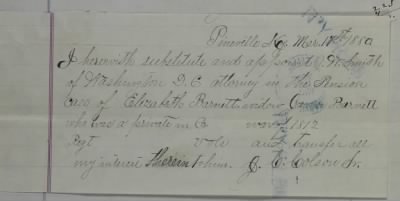 Pineville Ky. Mar. 17th 1880
I herewith substitute and appoint
of Washington D.C. attorney in the Pension
Case of Elizabeth Barnett widow Barnett
who was a private in Co war 1812
Regt Vols and transfer all
my interest therein to him. C. Colson Jr.